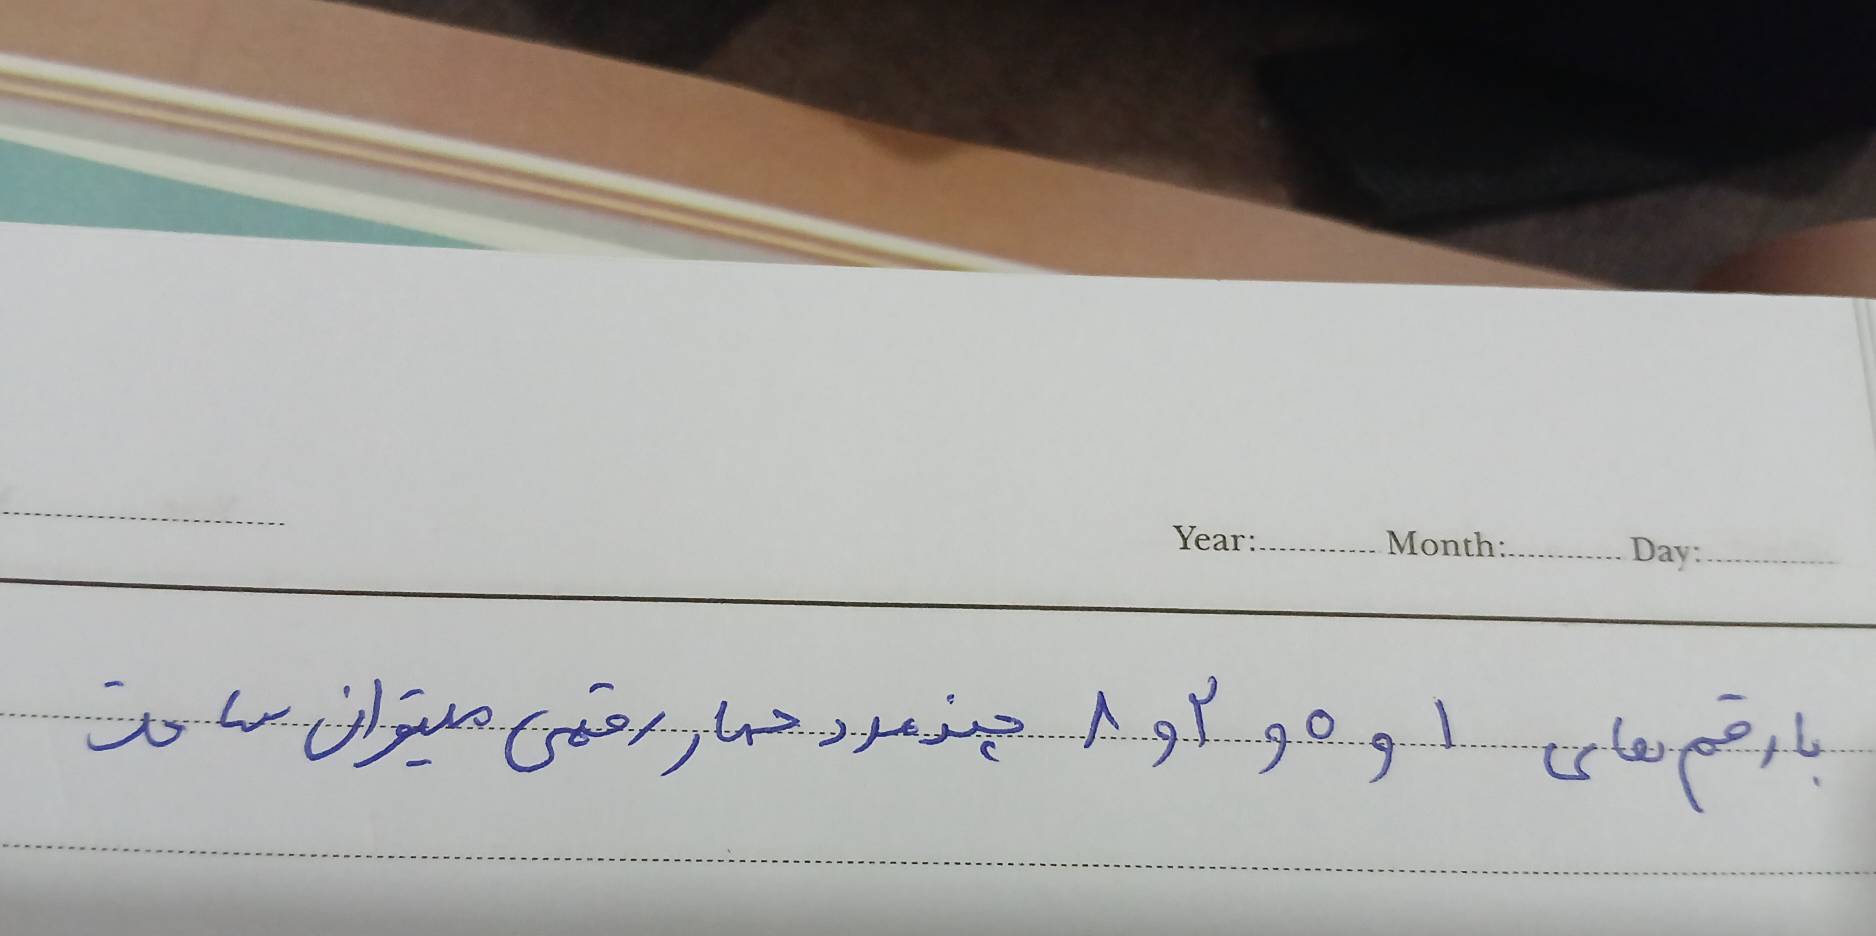 Year:............ Month:............ Day:............
با رقم های ۱ و ۵ و ۲ و ۸ چند عدد چهار رقمی میتوان ساخت